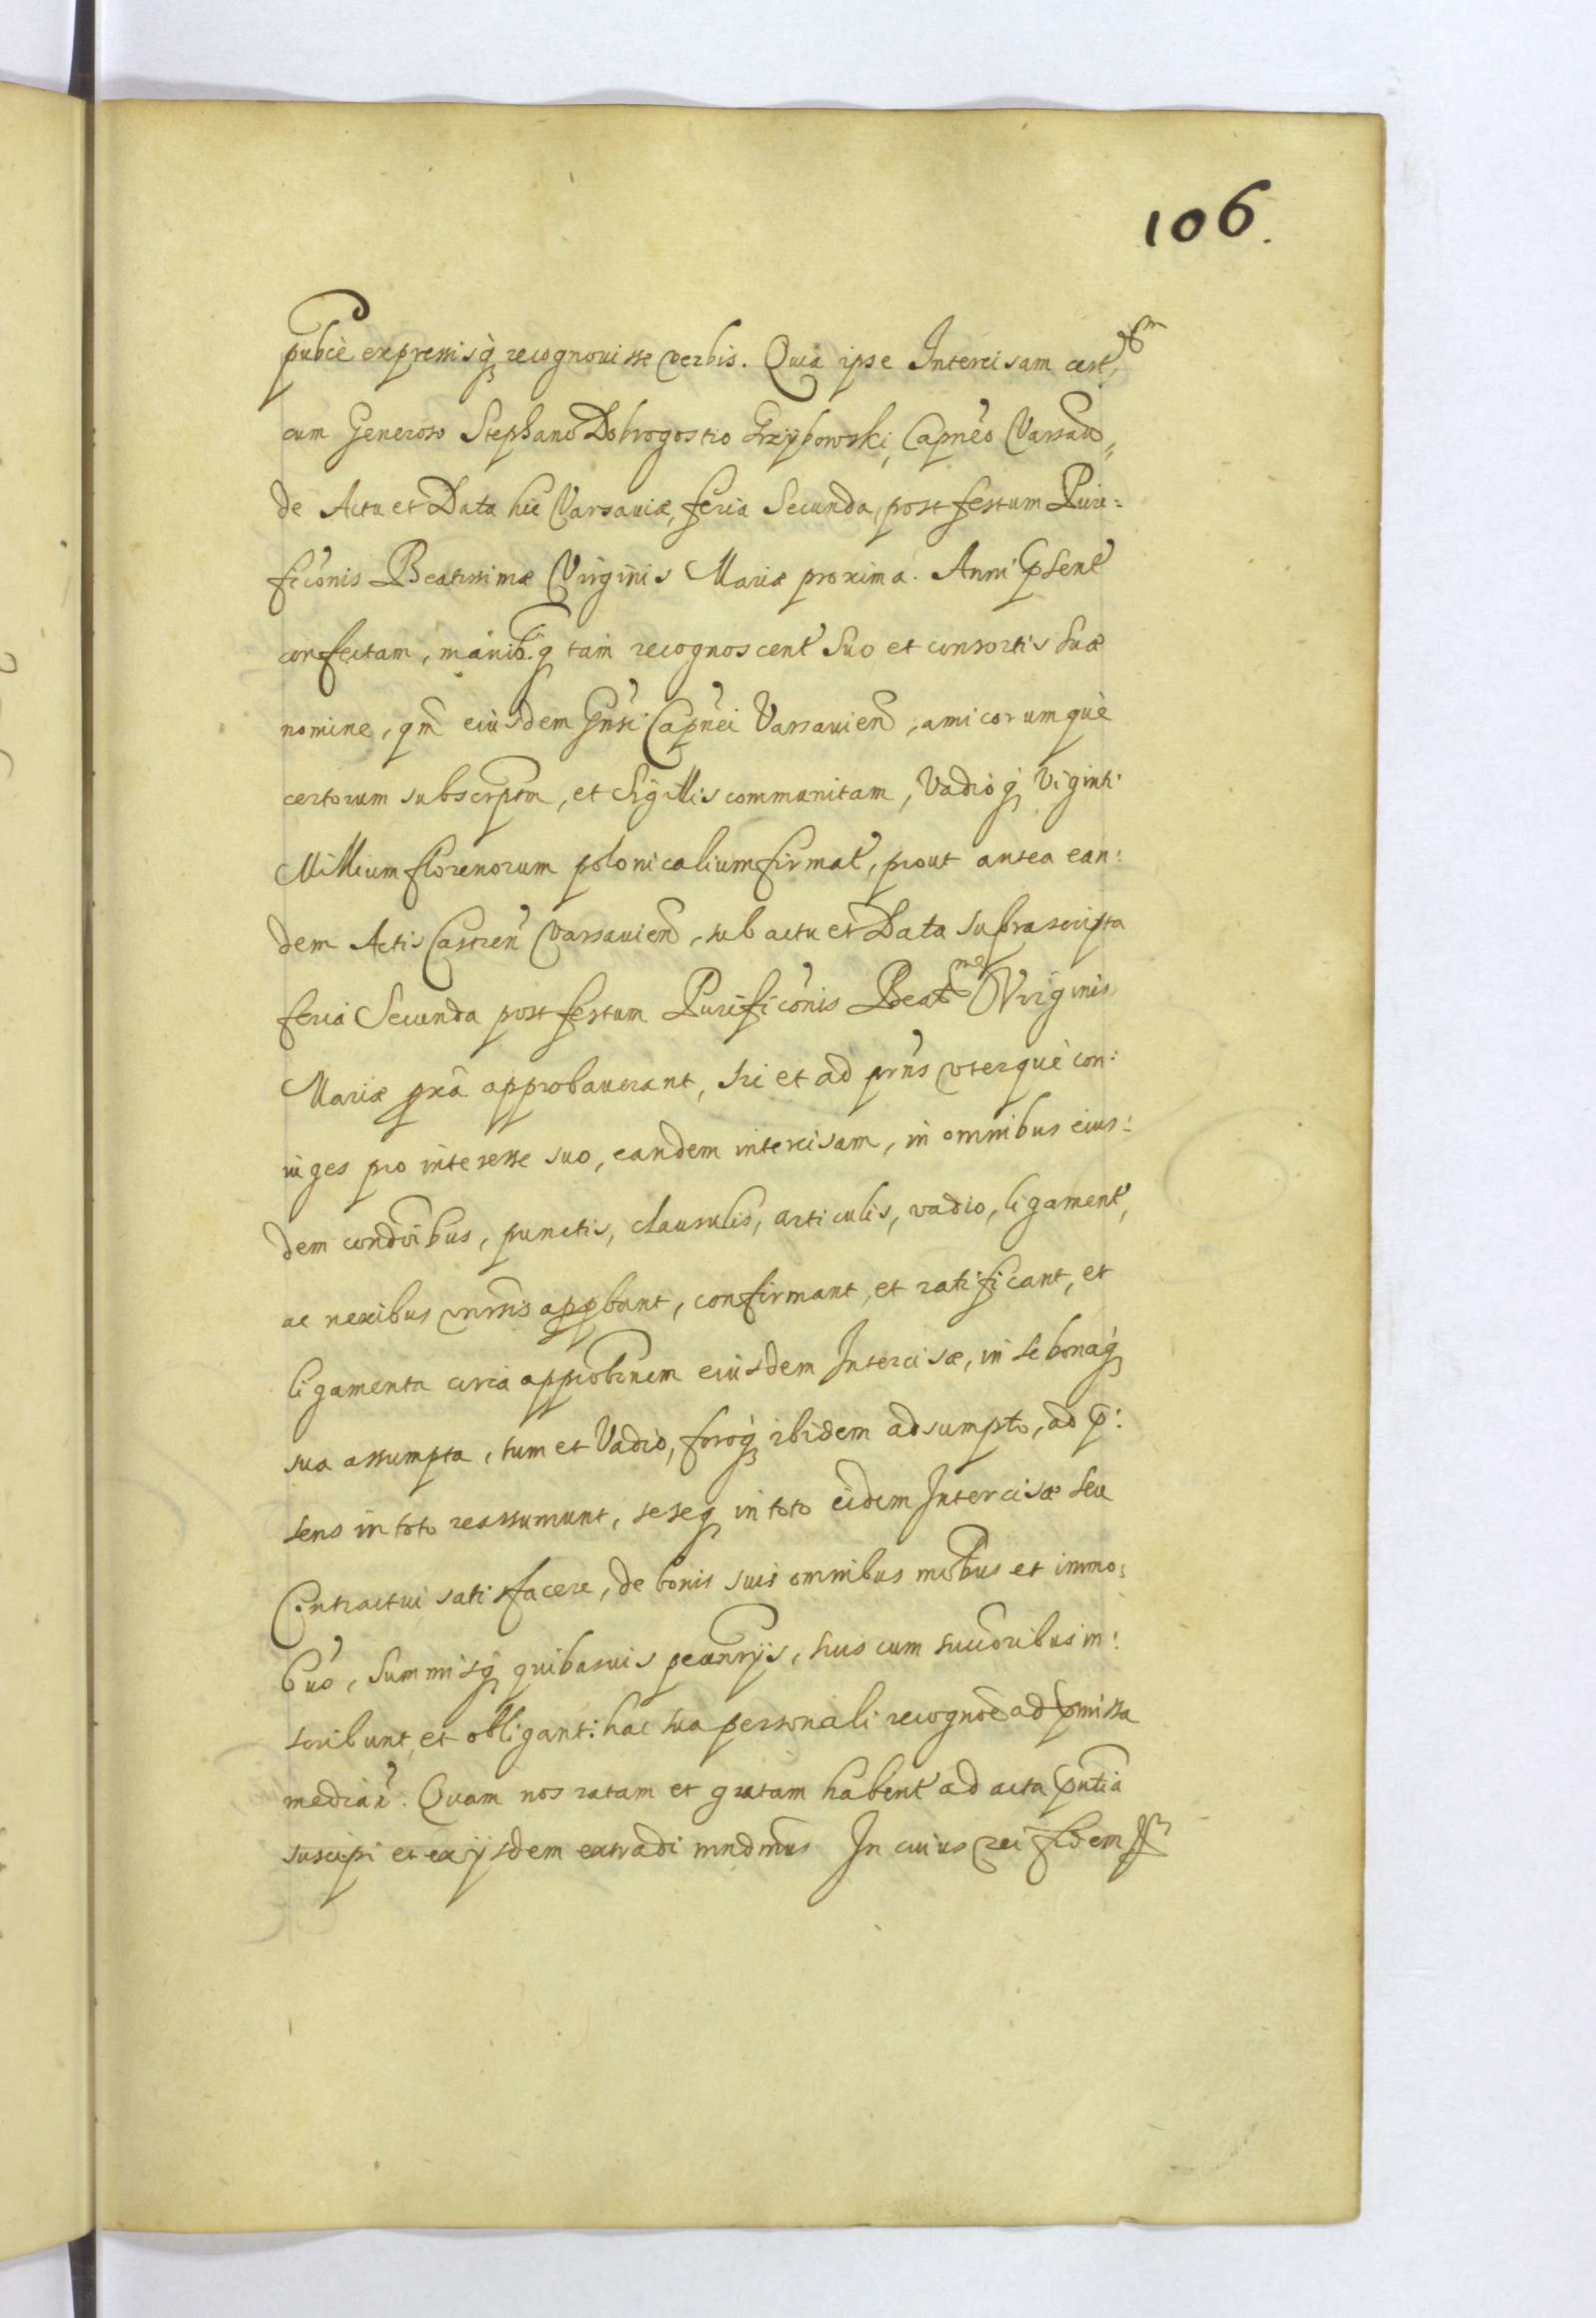 106.
pubcè expressisq́ recognouisse verbis. Quia ipse Intercisam cert
cum Generoso Stephano Dobrogostio Grzybowski, Capneo Varsau
de Actu et Data hic Varsauiæ, feria Secunda, post festum Puri:
ficonis Beatissimæ Virginis Mariæ proxima. Anni psent
confectam, manibq tam recognoscent Suo et consortis suæ
nomine, qm eiusdem Gnsi Capnei Varsauien, amicorumquè
certorum subscrptm, et Sigillis communitam, Vadioq́ Viginti
Millium florenorum polonicalium firmat, prout antea ean:
dem Actis Castren Varsauien, sub actu et Data suprascripta
feria Secunda post festum Purificonis Beatmæ Virginis
Mariæ pxa approbauerant, sic et ad prns vterquè con:
iuges pro interesse suo, eandem intercisam, in omnibus eius:
dem condoibus, punctis, clausulis, articulis, vadio, ligament,
ac nexibus vnirsis appbant, confirmant, et ratificant, et
ligamenta circa approbonem eiusdem Intercisæ, in se bonaq́
sua assumpta, tum et Vadio, foroq́ ibidem adsumpto, ad p:
sens in toto reassumunt, seseq in toto eidem Intercisæ seu
Contractui satisfacere, de bonis suis omnibus mobus et immo:
buo, Summisq́ quibusuis pecunrys, suis cum succoribus in:
scribunt et obligant: hac sua personali recognoe ad pmissa
median. Quam nos ratam et gratam habent ad acta pntia
suscipi et ex ysdem extradi mndmus In cuius rei fidem